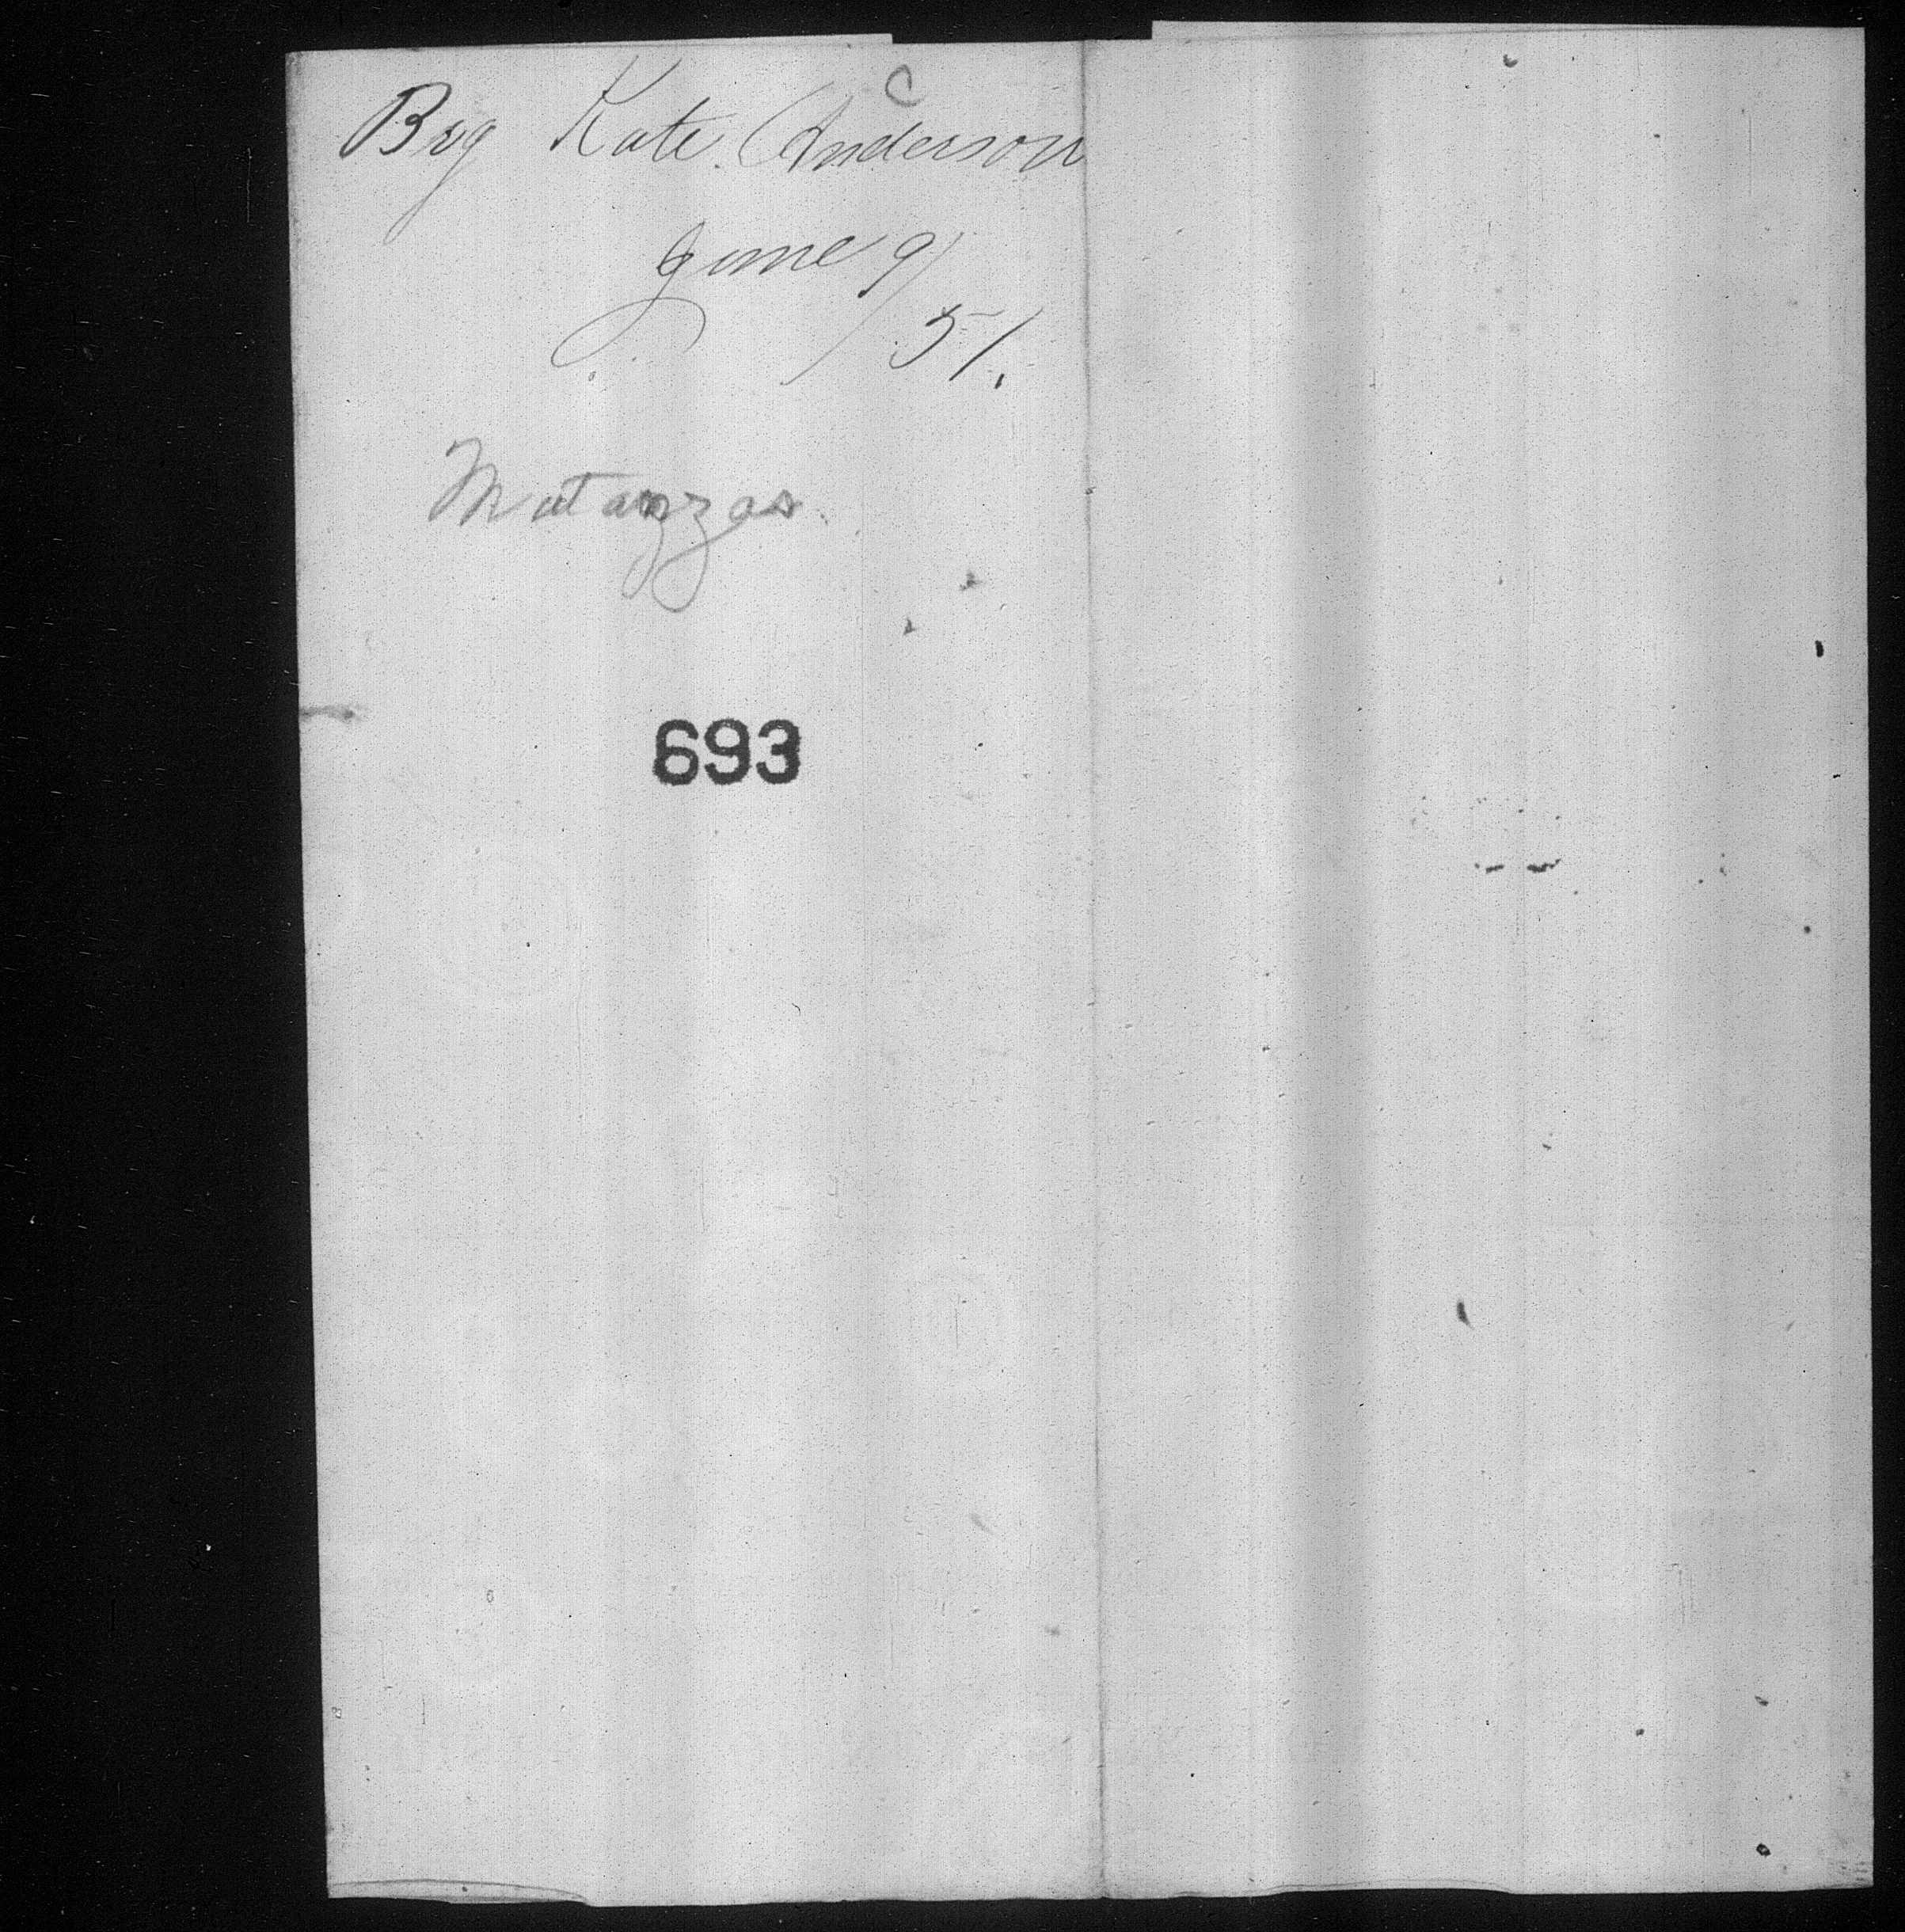 C
Brg Kate Anderson
June 9/
/51.
Matanzas
693